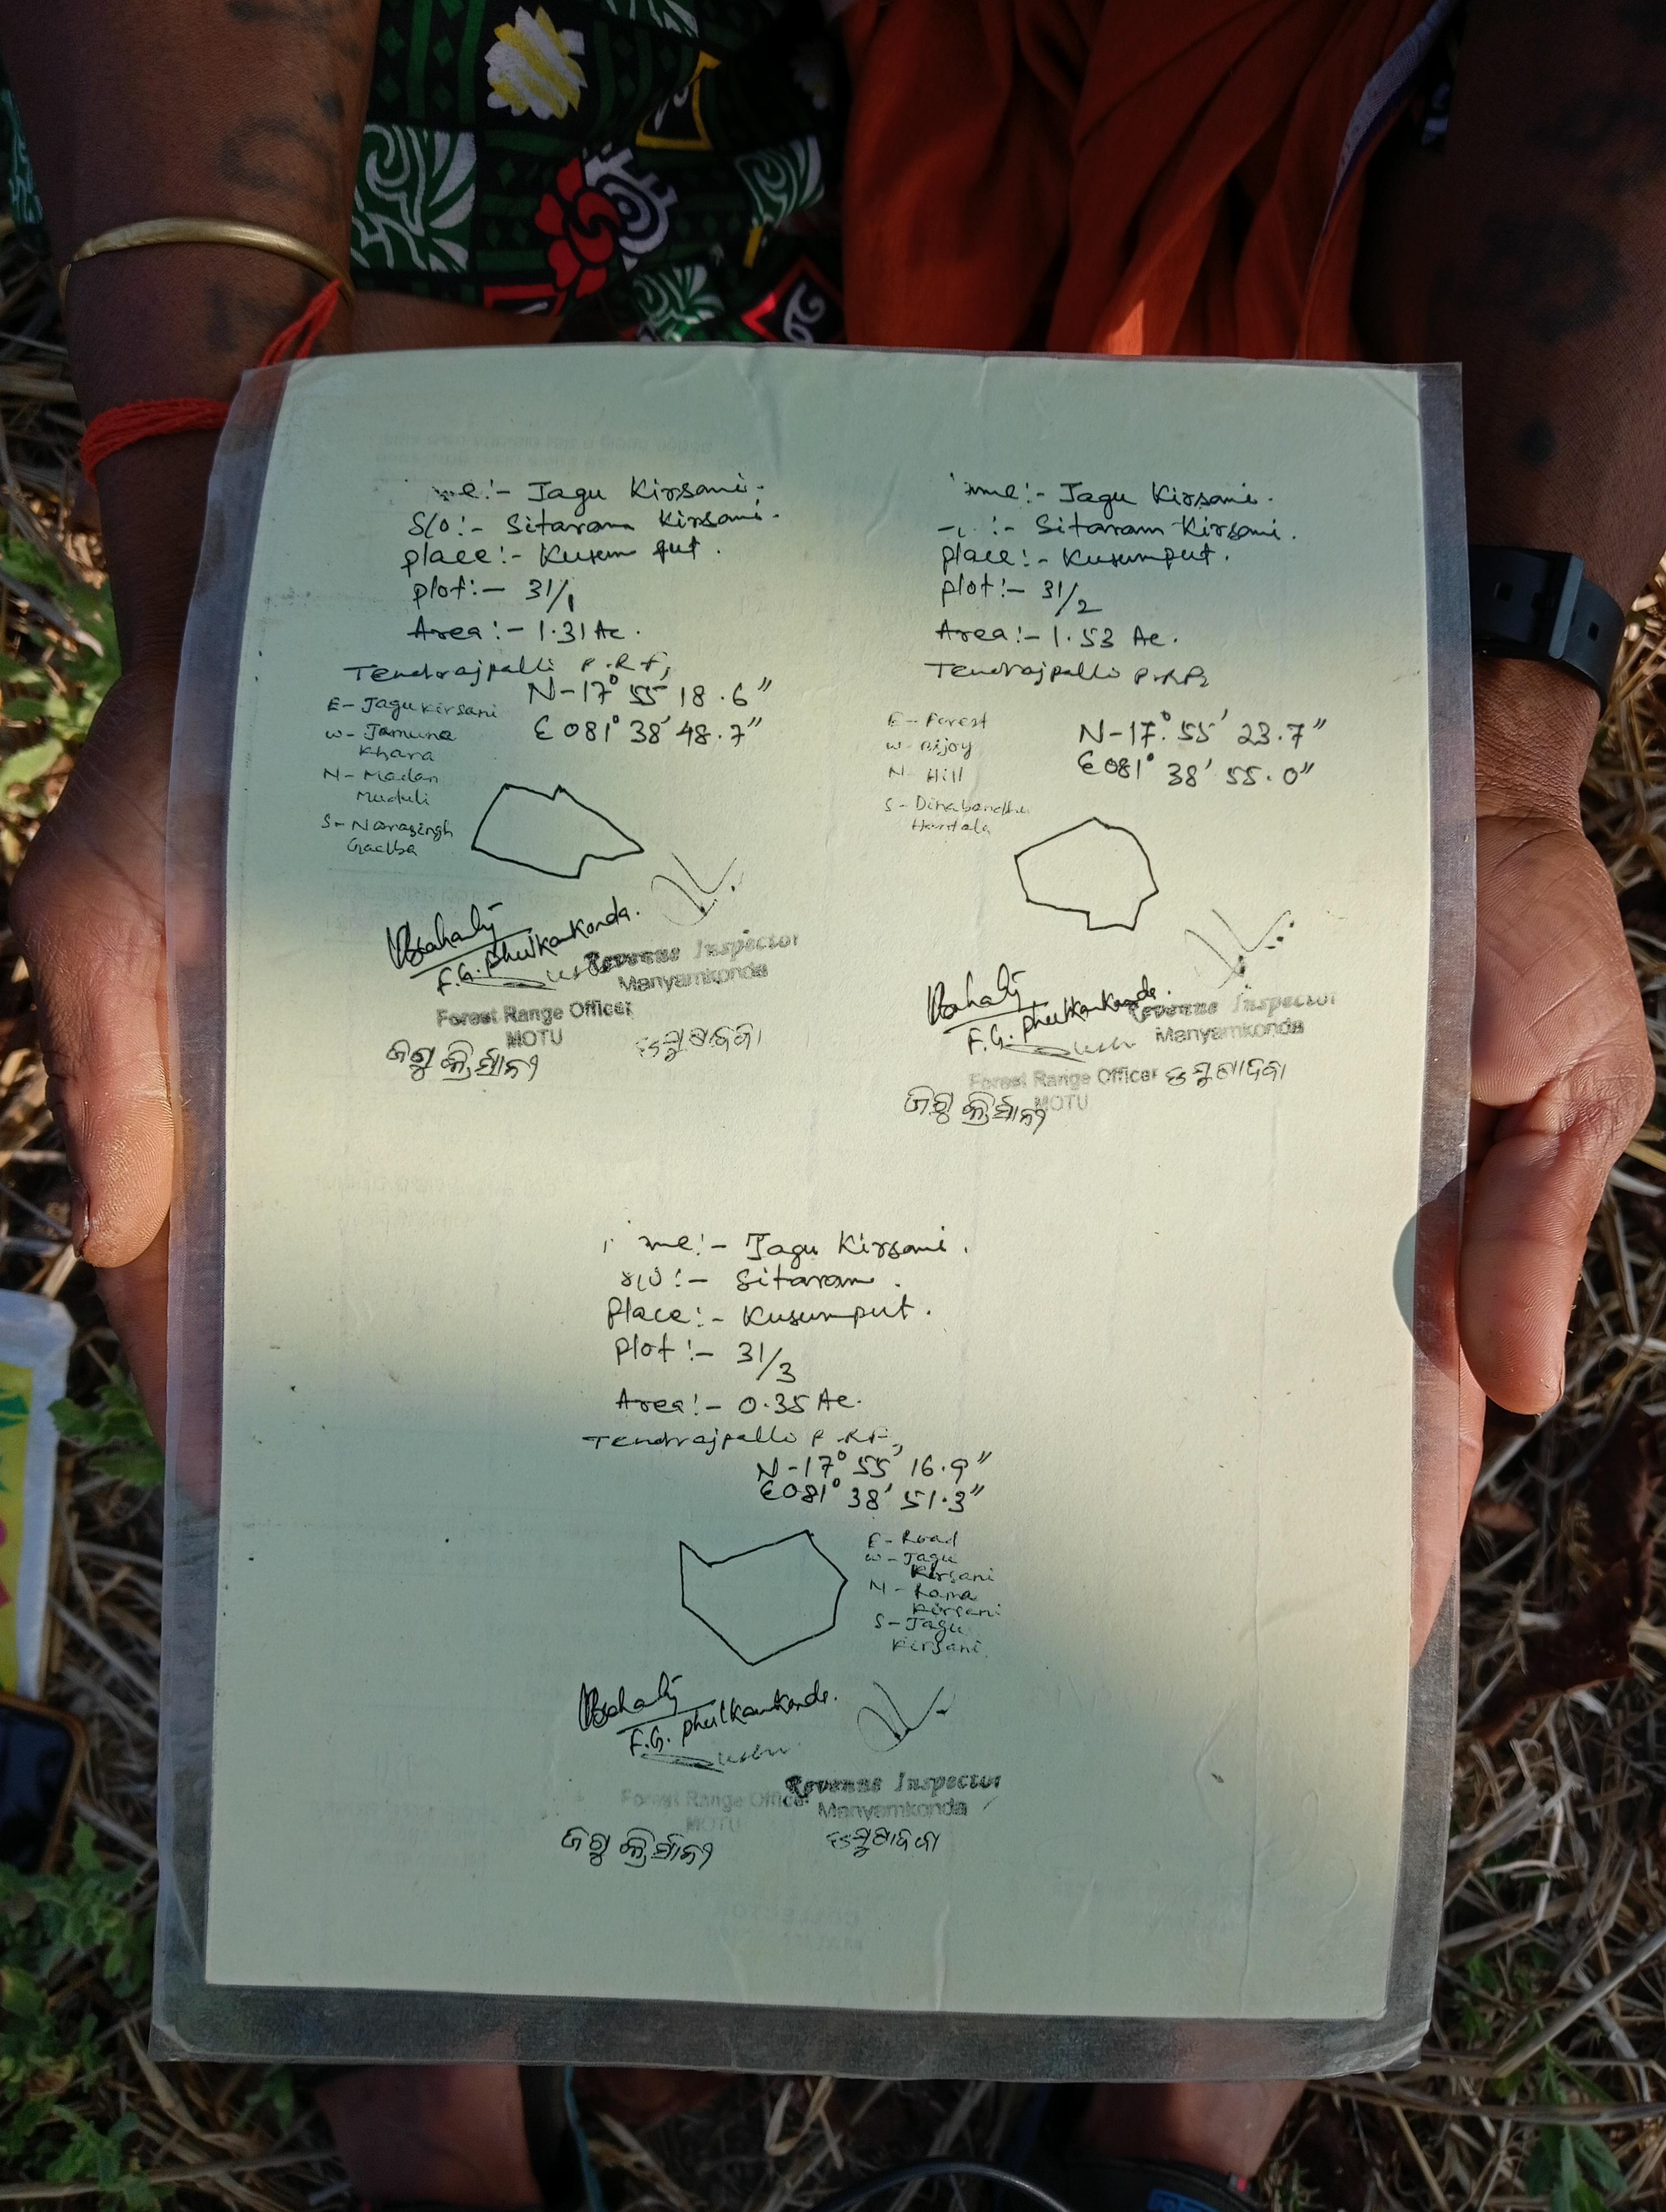 me:- Jagu Kirsani.
S/O:- Sitaram Kirsani.
place:- Kusumput.
plot:- 31/1
Area:- 1.31 Ac.
Tendrajpalli P.R.F,
N-17° 55' 18.6"
E 081° 38' 48.7"
E- Jagu Kirsani
W- Jamuna
Khara
N- Madan
Muduli
S- Narasingh
Gadba
F.G. Phulkankonda.
Revenue Inspector
Manyamkonda
Forest Range Officer
MOTU
ଜଗୁ କ୍ରିର୍ସାନୀ
me:- Jagu Kirsani.
:- Sitaram Kirsani.
place:- Kusumput.
plot:- 31/2
Area:- 1.53 Ac.
Tendrajpalli P.R.F,
E- Forest
W- Bijoy
N- Hill
S- Dinabandhu
Hantala
N-17° 55' 23.7"
E 081° 38' 55.0"
F.G. Phulkankonda.
Revenue Inspector
Manyamkonda
Forest Range Officer
MOTU
ଜଗୁ କ୍ରିର୍ସାନୀ
me:- Jagu Kirsani.
S/O:- Sitaram.
Place:- Kusumput.
Plot:- 31/3
Area:- 0.35 Ac.
Tendrajpalli P.R.F,
N-17° 55' 16.9"
E 081° 38' 51.3"
E- Road
W- Jagu
Kirsani
N- Rama
Kirsani
S- Jagu
Kirsani.
F.G. Phulkankonda.
Revenue Inspector
Manyamkonda
Forest Range Officer
MOTU
ଜଗୁ କ୍ରିର୍ସାନୀ